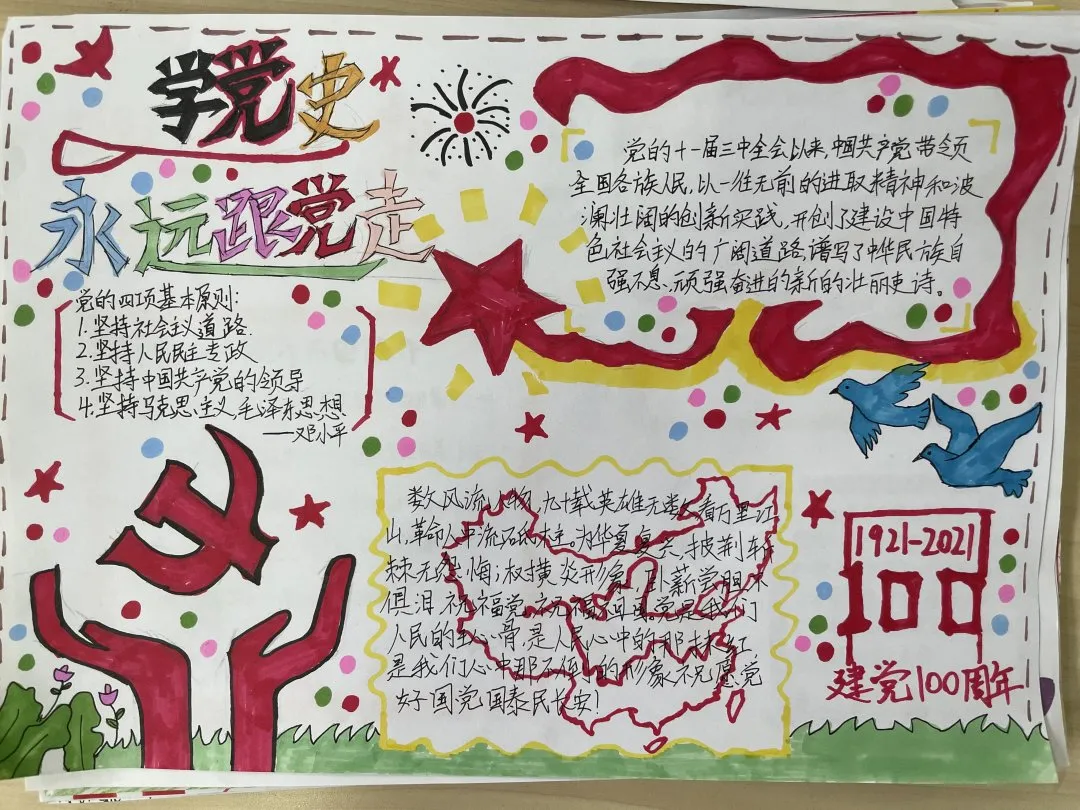 学党史
永远跟党走
党的四项基本原则:
1.坚持社会主义道路.
2.坚持人民民主专政
3.坚持中国共产党的领导
4.坚持马克思、主义,毛泽东思想
——邓小平
党的十一届三中全会以来,中国共产党带领
全国各族人民,以一往无前的进取精神和波
澜壮阔的创新实践,开创了建设中国特
色社会主义的广阔道路,谱写了中华民族自
强不息、顽强奋进的新的壮丽史诗。
数风流人物,九十载英雄无数;看万里江
山,革命人中流砥柱。为华夏复兴,披荆斩
棘无怨悔;权横炎形象,卧薪尝胆不
惧泪.祝福党,祝福祖国.党是我们
人民的主心骨,是人民心中的那抹红
是我们心中那不倒的形象.祝愿党
好国党国泰民长安!
1921-2021
100
建党100周年